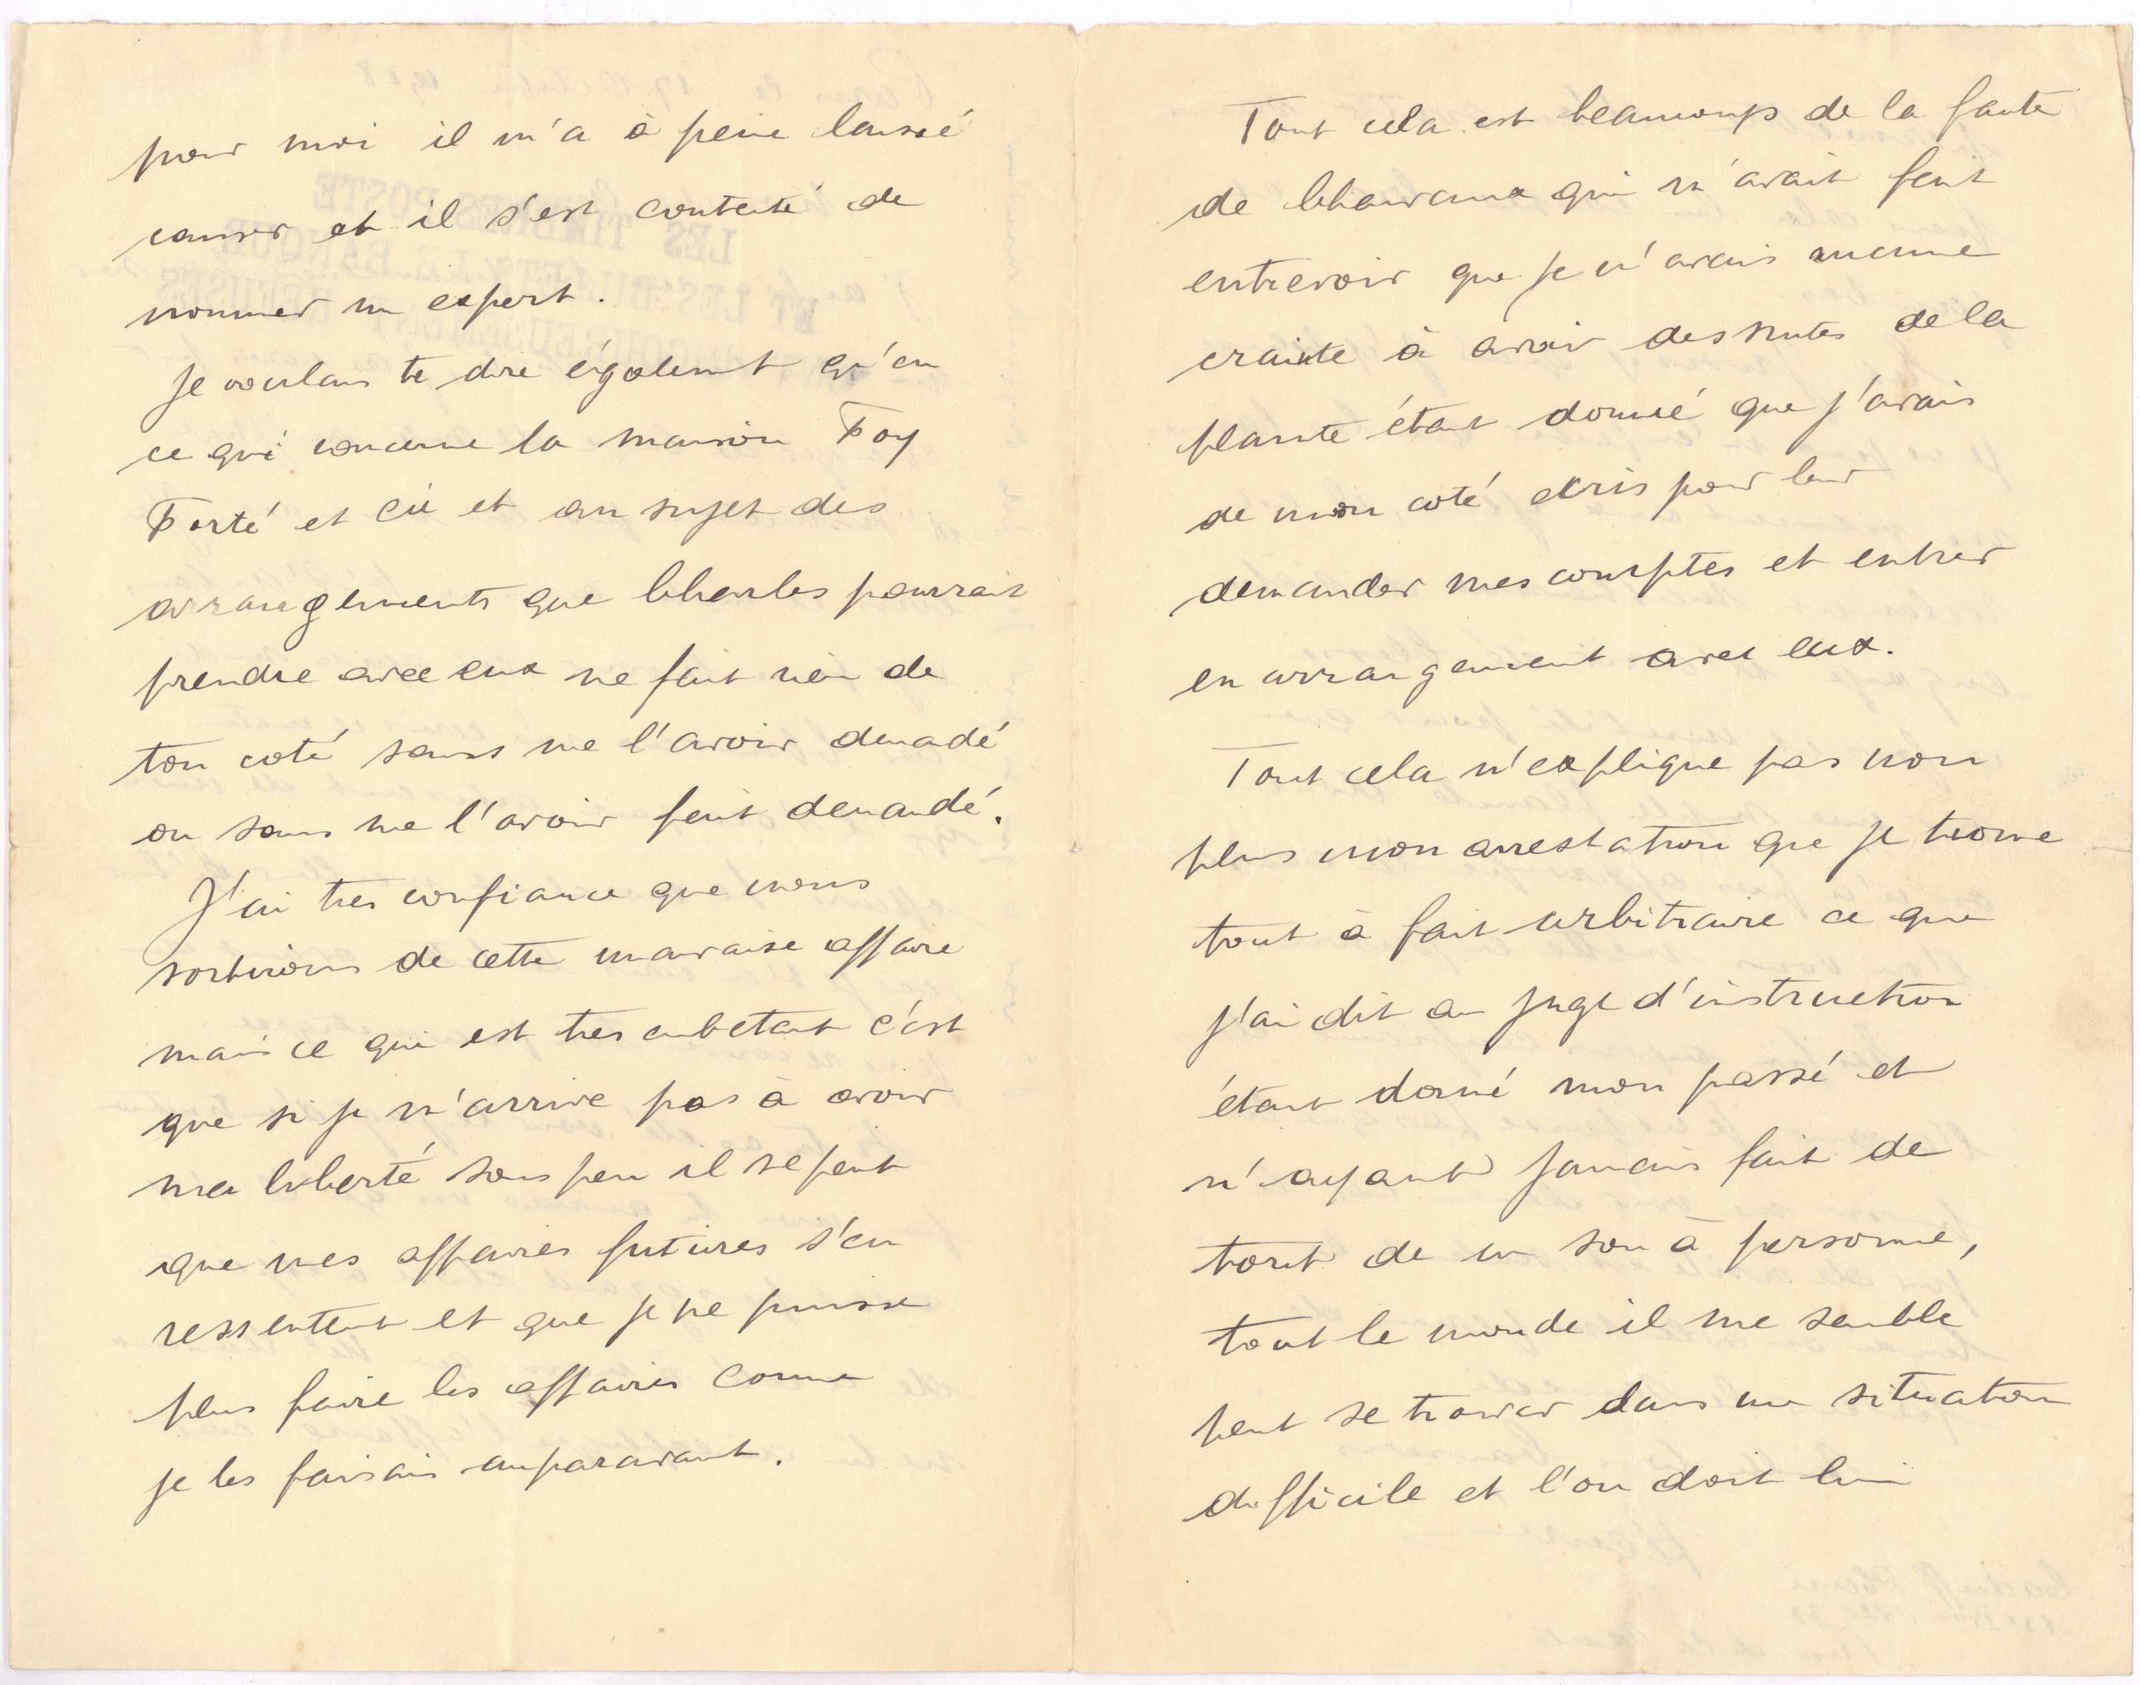 pour moi il m'a à peine laissé
causer et il s'est contenté de
nommer un expert.
Je voulais te dire également qu'en
ce qui concerne la maison Foy
Forté et Cie et au sujet des
arrangements que Charles pourrait
prendre avec eux ne fait rien de
ton coté sans me l'avoir demadé
ou sans me l'avoir fait demandé.
J'ai tres confiance que nous
sortirons de cette mauvaise affaire
mais ce qui est tres embetant c'est
que si je n'arrive pas à avoir
ma liberté sous peu il se peut
que mes affaires futures s'en
ressentent et que je ne puisse
plus faire les affaires comme
je les faisais auparavant.
Tout cela est beaucoups de la faute
de qui m'avait fait
entrevoir que je n'avais aucune
crainte à avoir des suites de la
plainte étant donné que j'avais
de mon coté ecris pour leur
demander mes comptes et entrer
en arrangement avec eux.
Tout cela n'explique pas non
plus mon arrestation que je trouve
tout à fait arbitraire ce que
j'ai dit au juge d'instruction
étant donné mon passé et
n'ayant jamais fait de
tort de un sou à personne,
tout le monde il me semble
peut se trouver dans une situation
difficile et l'on doit lui
LES TIMBRES-POSTE